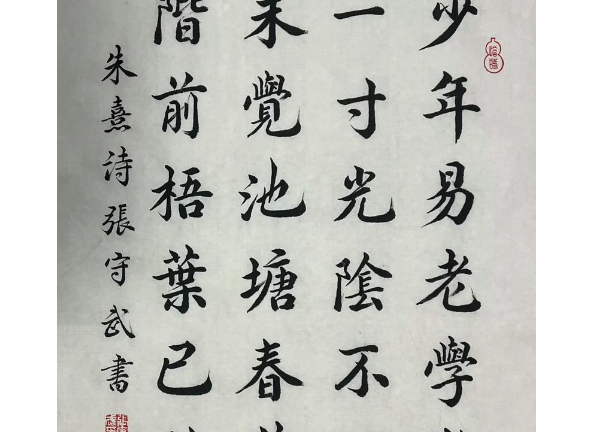 少年易老學
一寸光陰不
未覺池塘春
階前梧葉已
朱熹詩張守武書